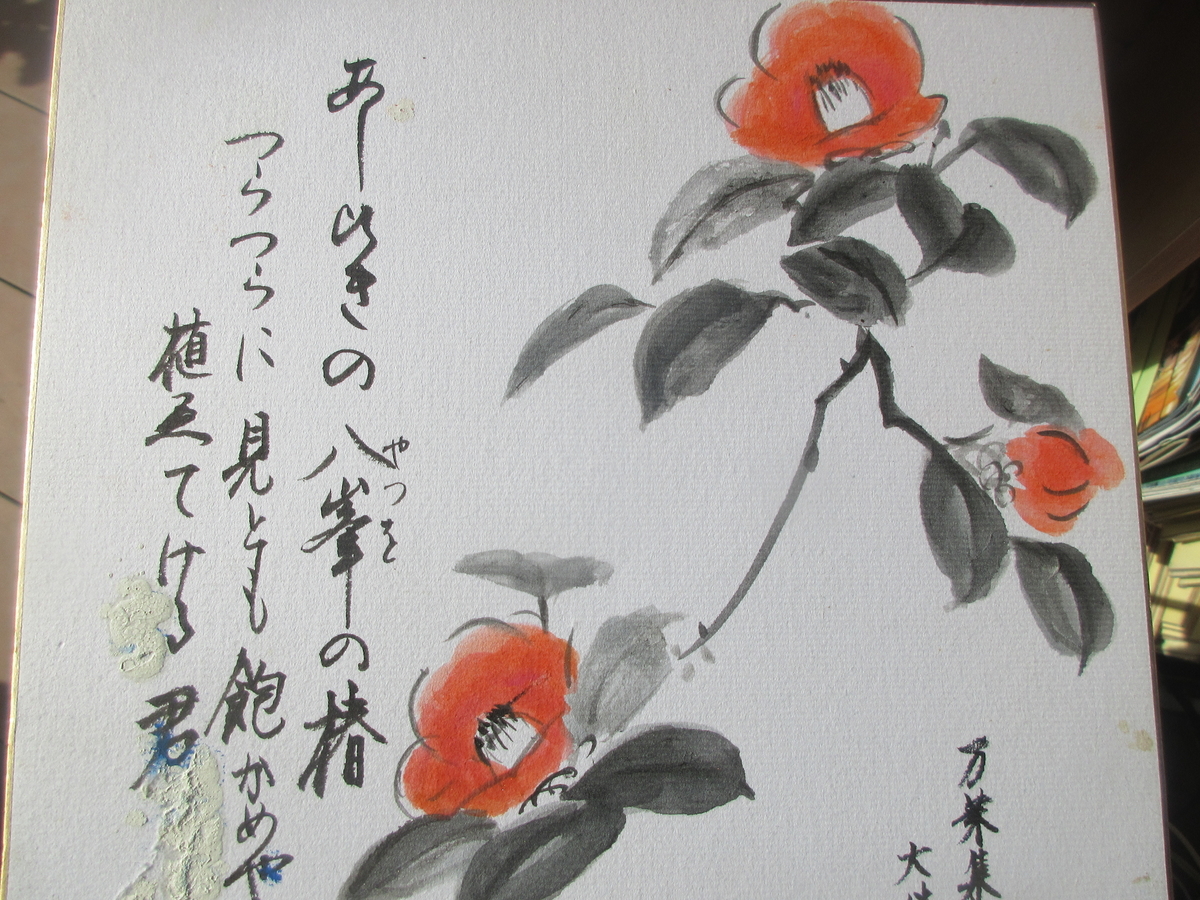 万葉集
大
あしひきの 八峯の椿
やつを
つらつらに 見とも 飽かめや
植ゑてける 君